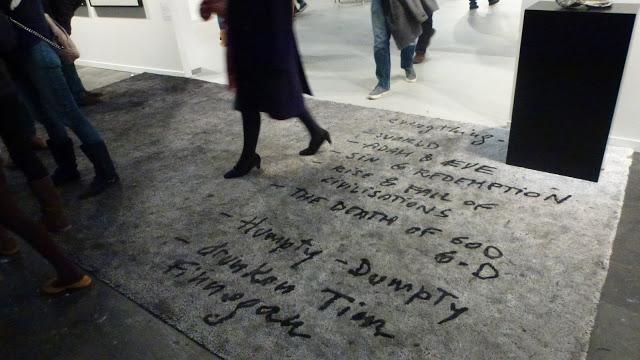 everything -
- ADAM & EVE
- SIN & REDEMPTION
RISE & FALL OF
CIVILISATIONS
- THE DEATH OF GOD
G-D
- Humpty-Dumpty
- drunken Tim
Finnegan